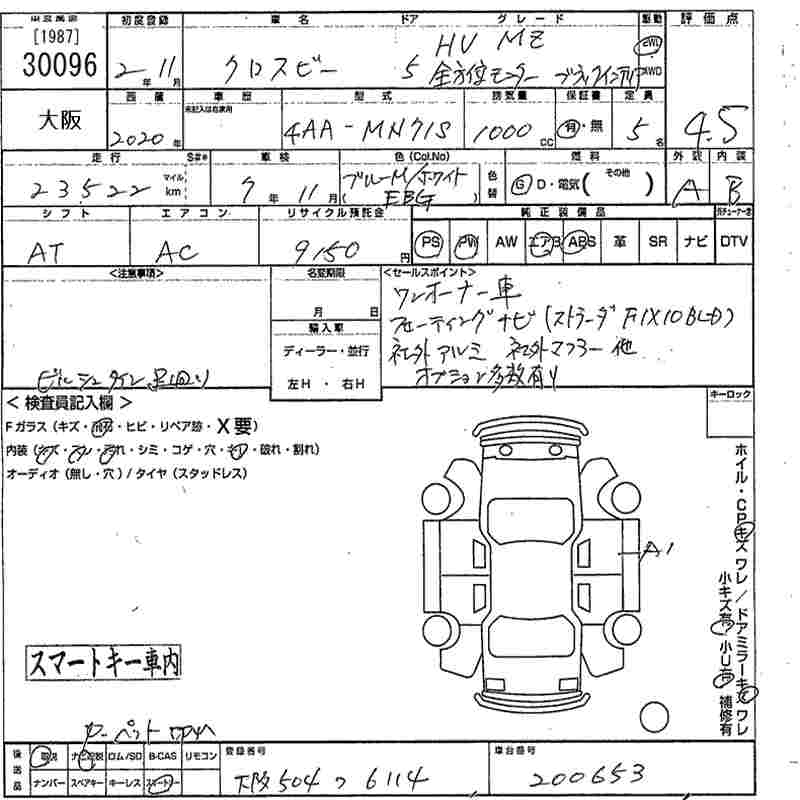 [1987]
30096
初度登録
2年11月
車名
クロスビー
ドア
5
グレード
HV MZ
全方位モニター
駆動
2WD
4WD
評価点
4.5
大阪
西暦
2020年
車歴
未記入は自家用
型式
4AA-MN71S
排気量
1000cc
保証書
有・無
定員
5名
走行
S#*
23,522
マイル
km
車検
7年11月
色(Col.No)
ブルーM/ホワイト
色替
燃料
G D・電気( その他 )
外装
A
内装
B
シフト
AT
エアコン
AC
リサイクル預託金
9150円
純正装備品
PS PW AW エアB ABS 革 SR ナビ DTV
<注意事項>
ビルシュタイン足回り
名変期限
月 日
輸入車
ディーラー・並行
左H・右H
<セールスポイント>
ワンオーナー車
フローティングナビ(ストラーダF1X10BLD)
社外アルミ 社外マフラー他
オプション多数有り
<検査員記入欄>
Fガラス(キズ・飛石・ヒビ・リペア跡・X要)
内装(キズ・スレ・汚れ・シミ・コゲ・穴・キレ・破れ・割れ)
オーディオ(無し・穴)/タイヤ(スタッドレス)
キーロック
A1
ホイル・CPキズワレ/ドアミラーキズワレ
小キズ有 小U有 補修有
スマートキー車内
後送品
取説 ナビ取説 ロム/SD B-CAS リモコン
ナンバー スペアキー キーレス スマートキー
登録番号
大阪504つ6114
車台番号
200653